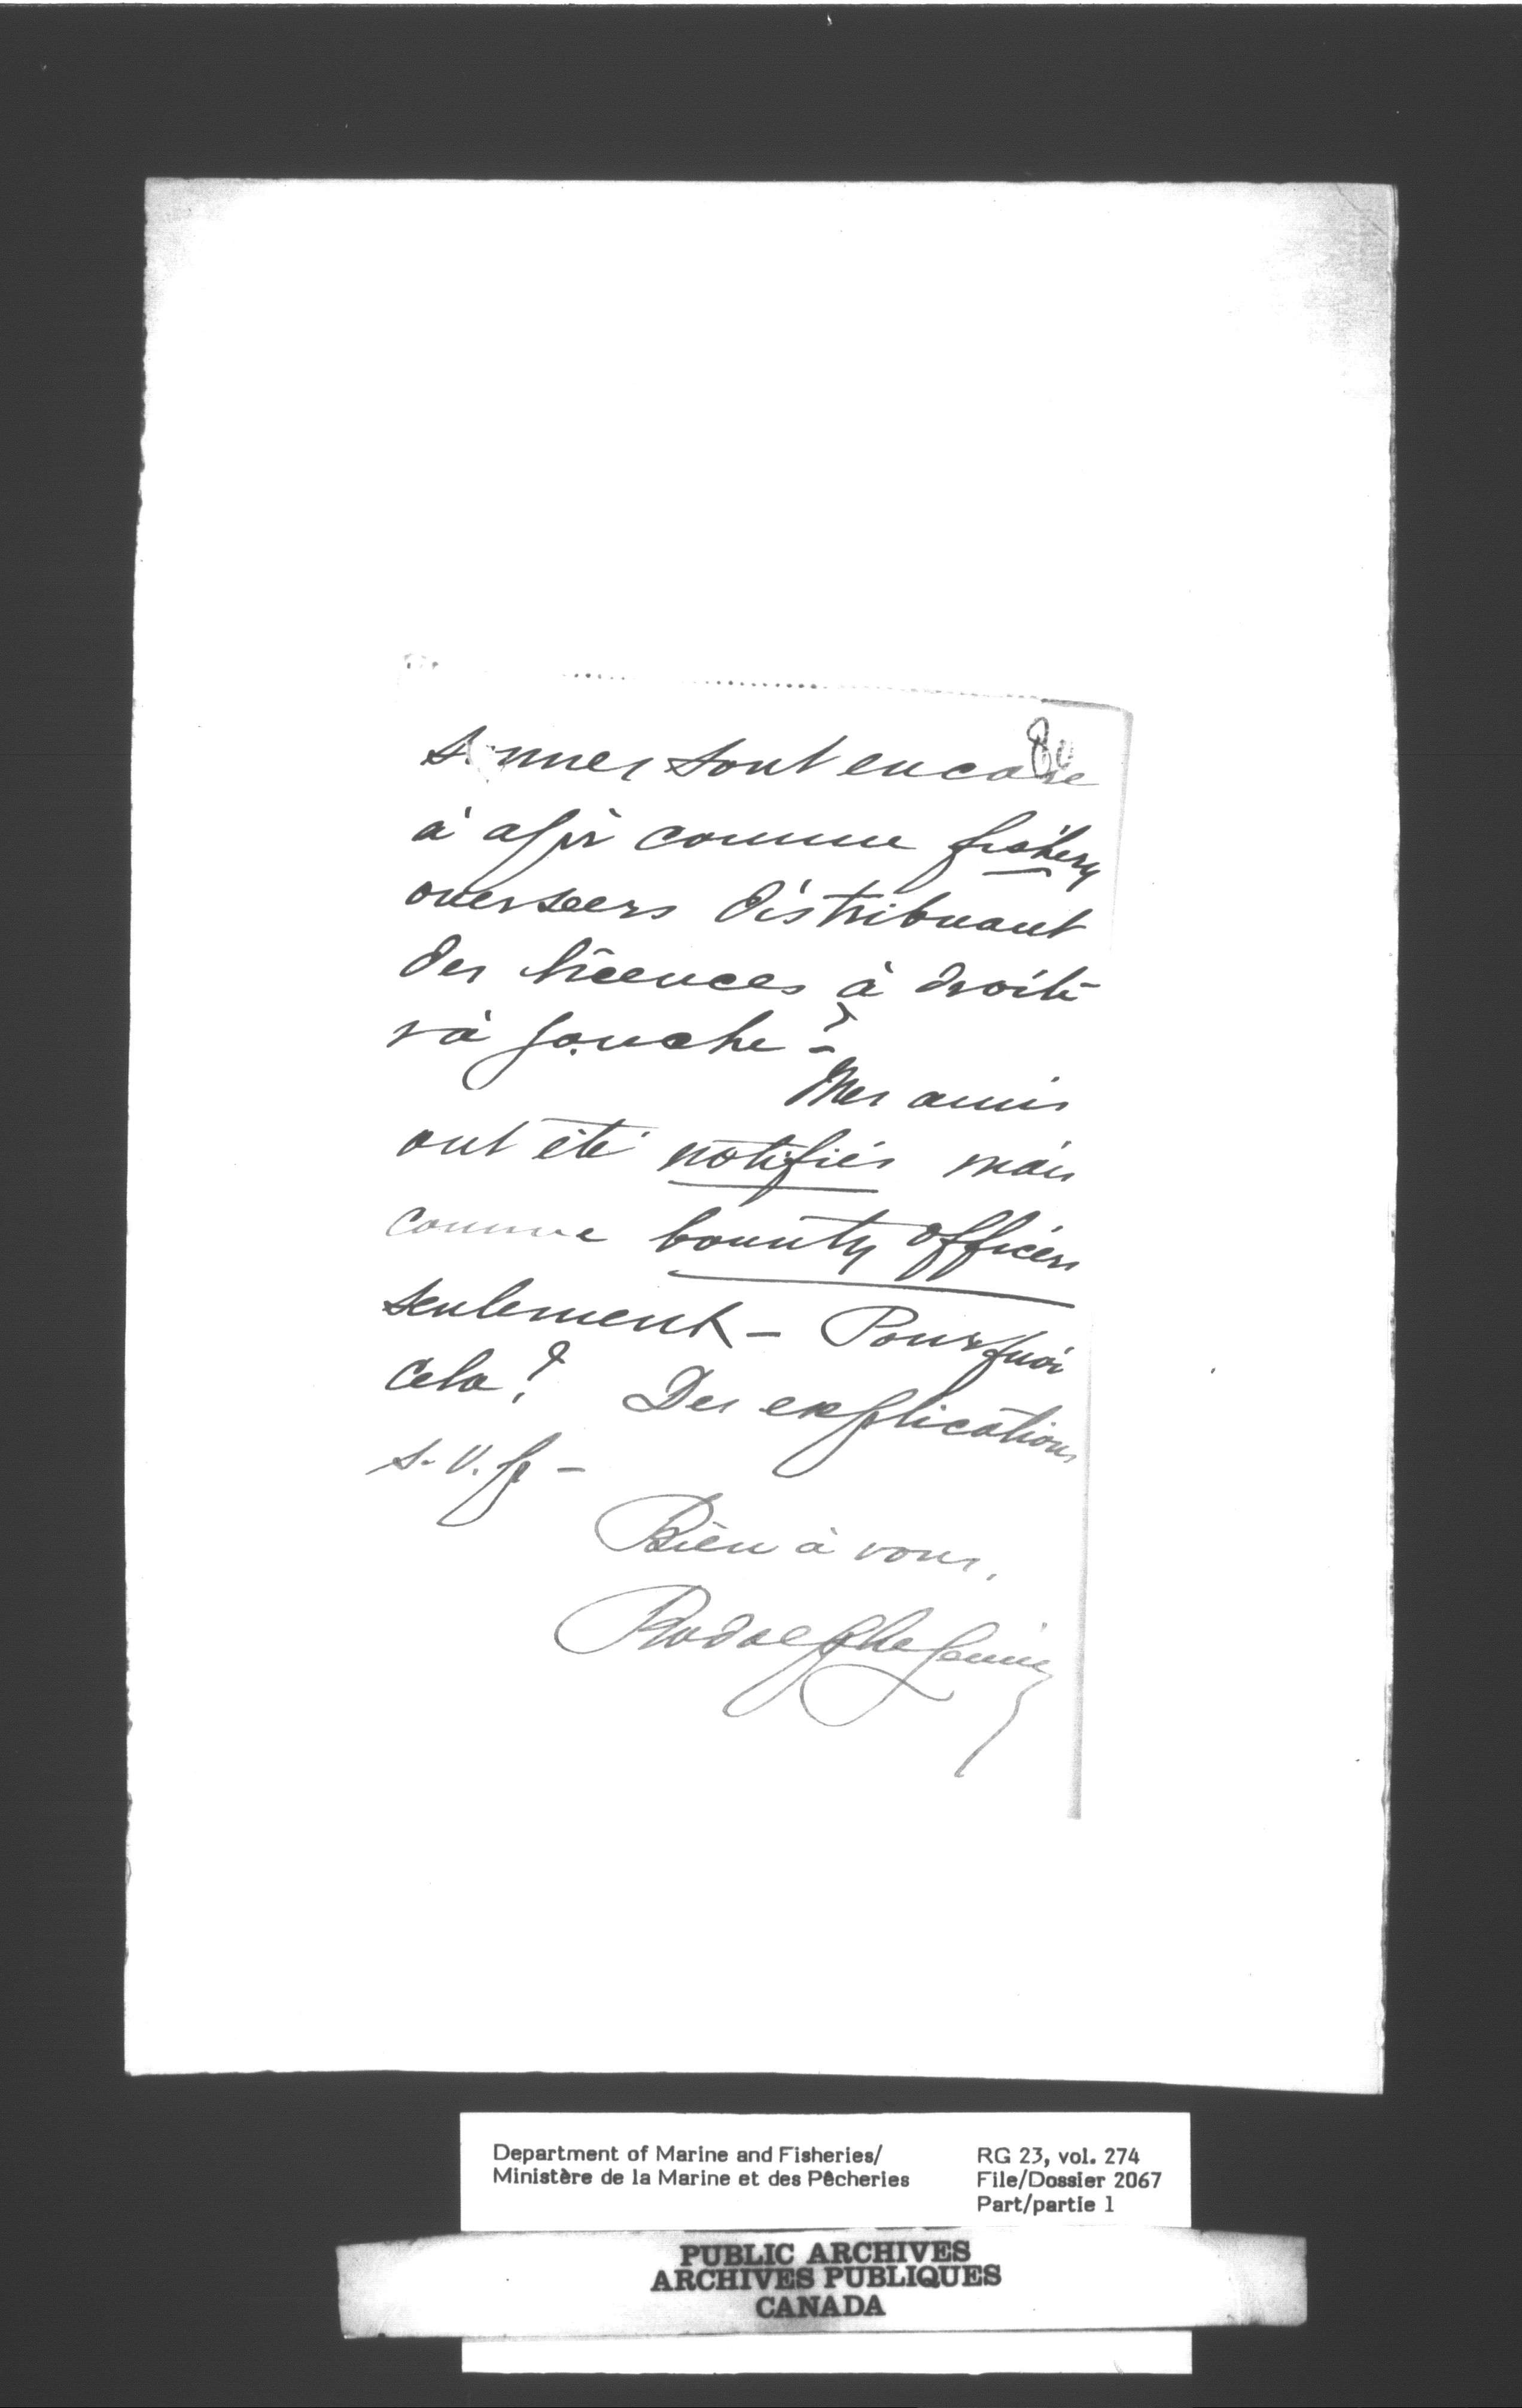 80
sonnes sont encore
à agir comme fishery
overseers distribuant
des licences à droite
& à gauche ?
Mes amis
ont été notifiés mais
comme bounty officers
seulement — Pourquoi
cela ? Des explications
s.v.p —
Bien à vous,
Rodolphe Lemieux
Department of Marine and Fisheries/
Ministère de la Marine et des Pêcheries
RG 23, vol. 274
File/Dossier 2067
Part/partie 1
PUBLIC ARCHIVES
ARCHIVES PUBLIQUES
CANADA